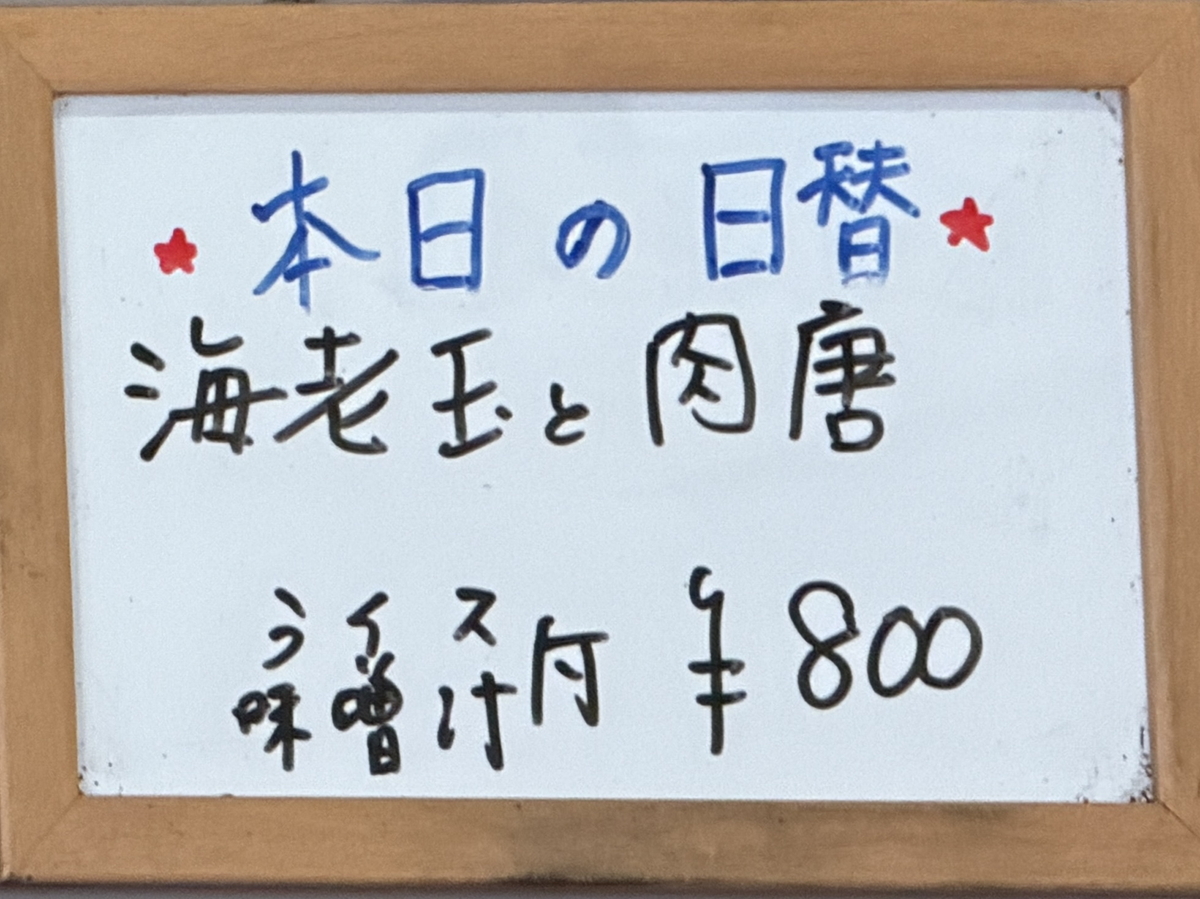 ★本日の日替★
海老玉と肉唐
ライス
味噌汁付 ¥800